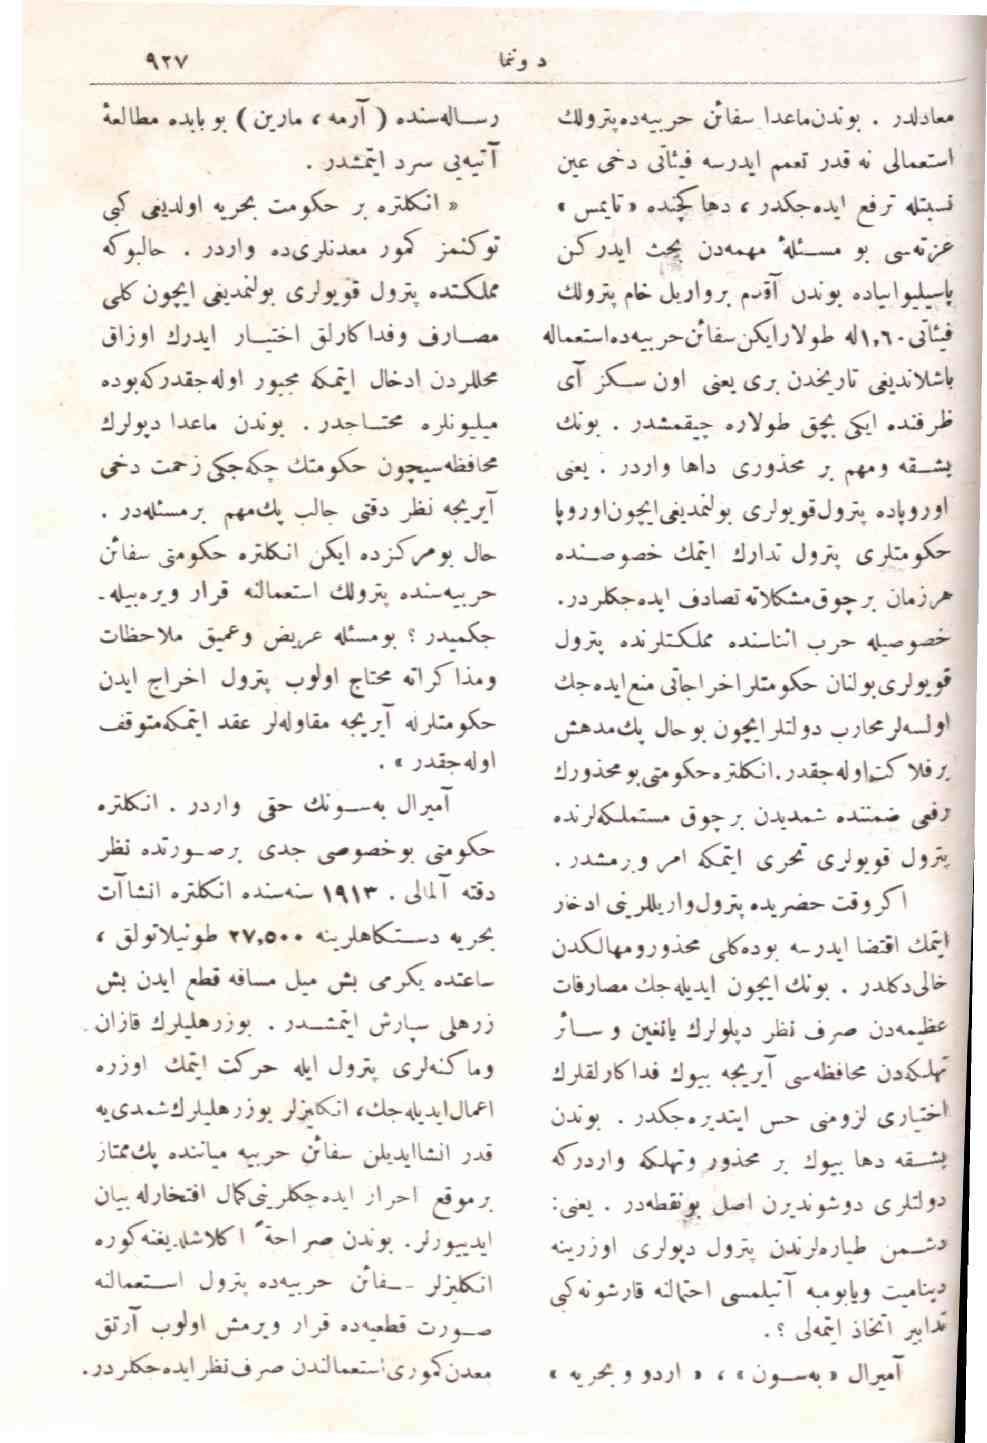 دوننما
٩٢٧
معادلدر . بوندن ماعدا سفائن حربیه‌ده پترولك
استعمالی نه قدر تعمم ایدرسه فیئاتی دخی عین
نسبتله ترفع ایده‌جكدر ، دها كچنده « تایمس »
غزته‌سی بو مسئلهٔ مهمه‌دن بحث ایدركن
پاسیلیوانیاده بوندن آقدم برواریل خام پترولك
فیئاتی ١,٦٠ له طولار ایكن سفائن حربیه‌ده استعماله
باشلاندیغی تاریخدن بری یعنی اون سكز آی
ظرفنده ایكی بچق طولاره چیقمشدر . بونك
بشقه ومهم بر محذوری داها واردر . یعنی
اوروپاده پترول قویولری بولنمدیغی ایچون اوروپا
حكومتلری پترول تدارك ایتمك خصوصنده
هرزمان برچوق مشكلاته تصادف ایده‌جكلردر.
خصوصیله حرب اثناسنده مملكتلرنده پترول
قویولری بولنان حكومتلر اخراجاتی منع ایده‌جك
اولسه‌لر محارب دولتلر ایچون بو حال پك مدهش
بر فلاكت اوله‌جقدر. انكلتره حكومتی بو محذورك
رفعی ضمننده شمدیدن برچوق مستملكه‌لرنده
پترول قویولری تحری ایتمكه امر ویرمشدر .
اكر وقت حضریده پترول واریللرینی ادخار
ایتمك اقتضا ایدرسه بوده كلی محذور ومهالكدن
خالی دكلدر . بونك ایچون ایدیله‌جك مصارفات
عظیمه‌دن صرف نظر دپولرك یانغین و سائر
تهلكه‌دن محافظه‌سی آیریجه بیوك فداكارلقلرك
اختیاری لزومنی حس ایتدیره‌جكدر . بوندن
بشقه دها بیوك بر محذور وتهلكه واردركه
دولتلری دوشوندیرن اصل بونقطه‌در . یعنی:
دشمن طیاره‌لرندن پترول دپولری اوزرینه
دینامیت ویابومبه آتیلمسی احتمالنه قارشو نه كبی
تدابیر اتخاذ ایتمه‌لی ؟ .
آمیرال « به‌سون » ، « اردو و بحریه »
رساله‌سنده ( آرمه ، مارین ) بو بابده مطالعهٔ
آتیه‌یی سرد ایتمشدر .
« انكلتره بر حكومت بحریه اولدیغی كبی
توكنمز كمور معدنلری‌ده واردر . حالبوكه
مملكتده پترول قویولری بولنمدیغی ایچون كلی
مصارف وفداكارلق اختیار ایدرك اوزاق
محللردن ادخال ایتمكه مجبور اوله‌جقدركه بوده
میلیونلره محتاجدر . بوندن ماعدا دپولرك
محافظه‌سیچون حكومتك چكه‌جكی زحمت دخی
آیریجه نظر دقتی جالب پك مهم بر مسئله‌در .
حال بو مركزده ایكن انكلتره حكومتی سفائن
حربیه‌سنده پترولك استعمالنه قرار ویره‌بیله-
جكمیدر ؟ بو مسئله عریض وعمیق ملاحظات
ومذاكراته محتاج اولوب پترول اخراج ایدن
حكومتلرله آیریجه مقاوله‌لر عقد ایتمكه متوقف
اوله‌جقدر » .
آمیرال به‌سونك حقی واردر . انكلتره
حكومتی بو خصوصی جدی بر صورتده نظر
دقته آلمالی . ١٩١٣ سنه‌سنده انكلتره انشاآت
بحریه دستكاهلرینه ٢٧,٥٠٠ طونیلاتولق ،
ساعتده یكرمی بش میل مسافه قطع ایدن بش
زرهلی سپارش ایتمشدر . بوزرهلیلرك قازان
وماكنه‌لری پترول ایله حركت ایتمك اوزره
اعمال ایدیله‌جك، انكلیزلر بوزرهلیلرك شمدی‌یه
قدر انشا ایدیلن سفائن حربیه میاننده پك ممتاز
بر موقع احراز ایده‌جكلرینی كمال افتخارله بیان
ایدییورلر. بوندن صراحةً اكلاشلدیغنه كوره
انكلیزلر سفائن حربیه‌ده پترول استعمالنه
صورت قطعیه‌ده قرار ویرمش اولوب آرتق
معدن كموری استعمالندن صرف نظر ایده‌جكلردر.